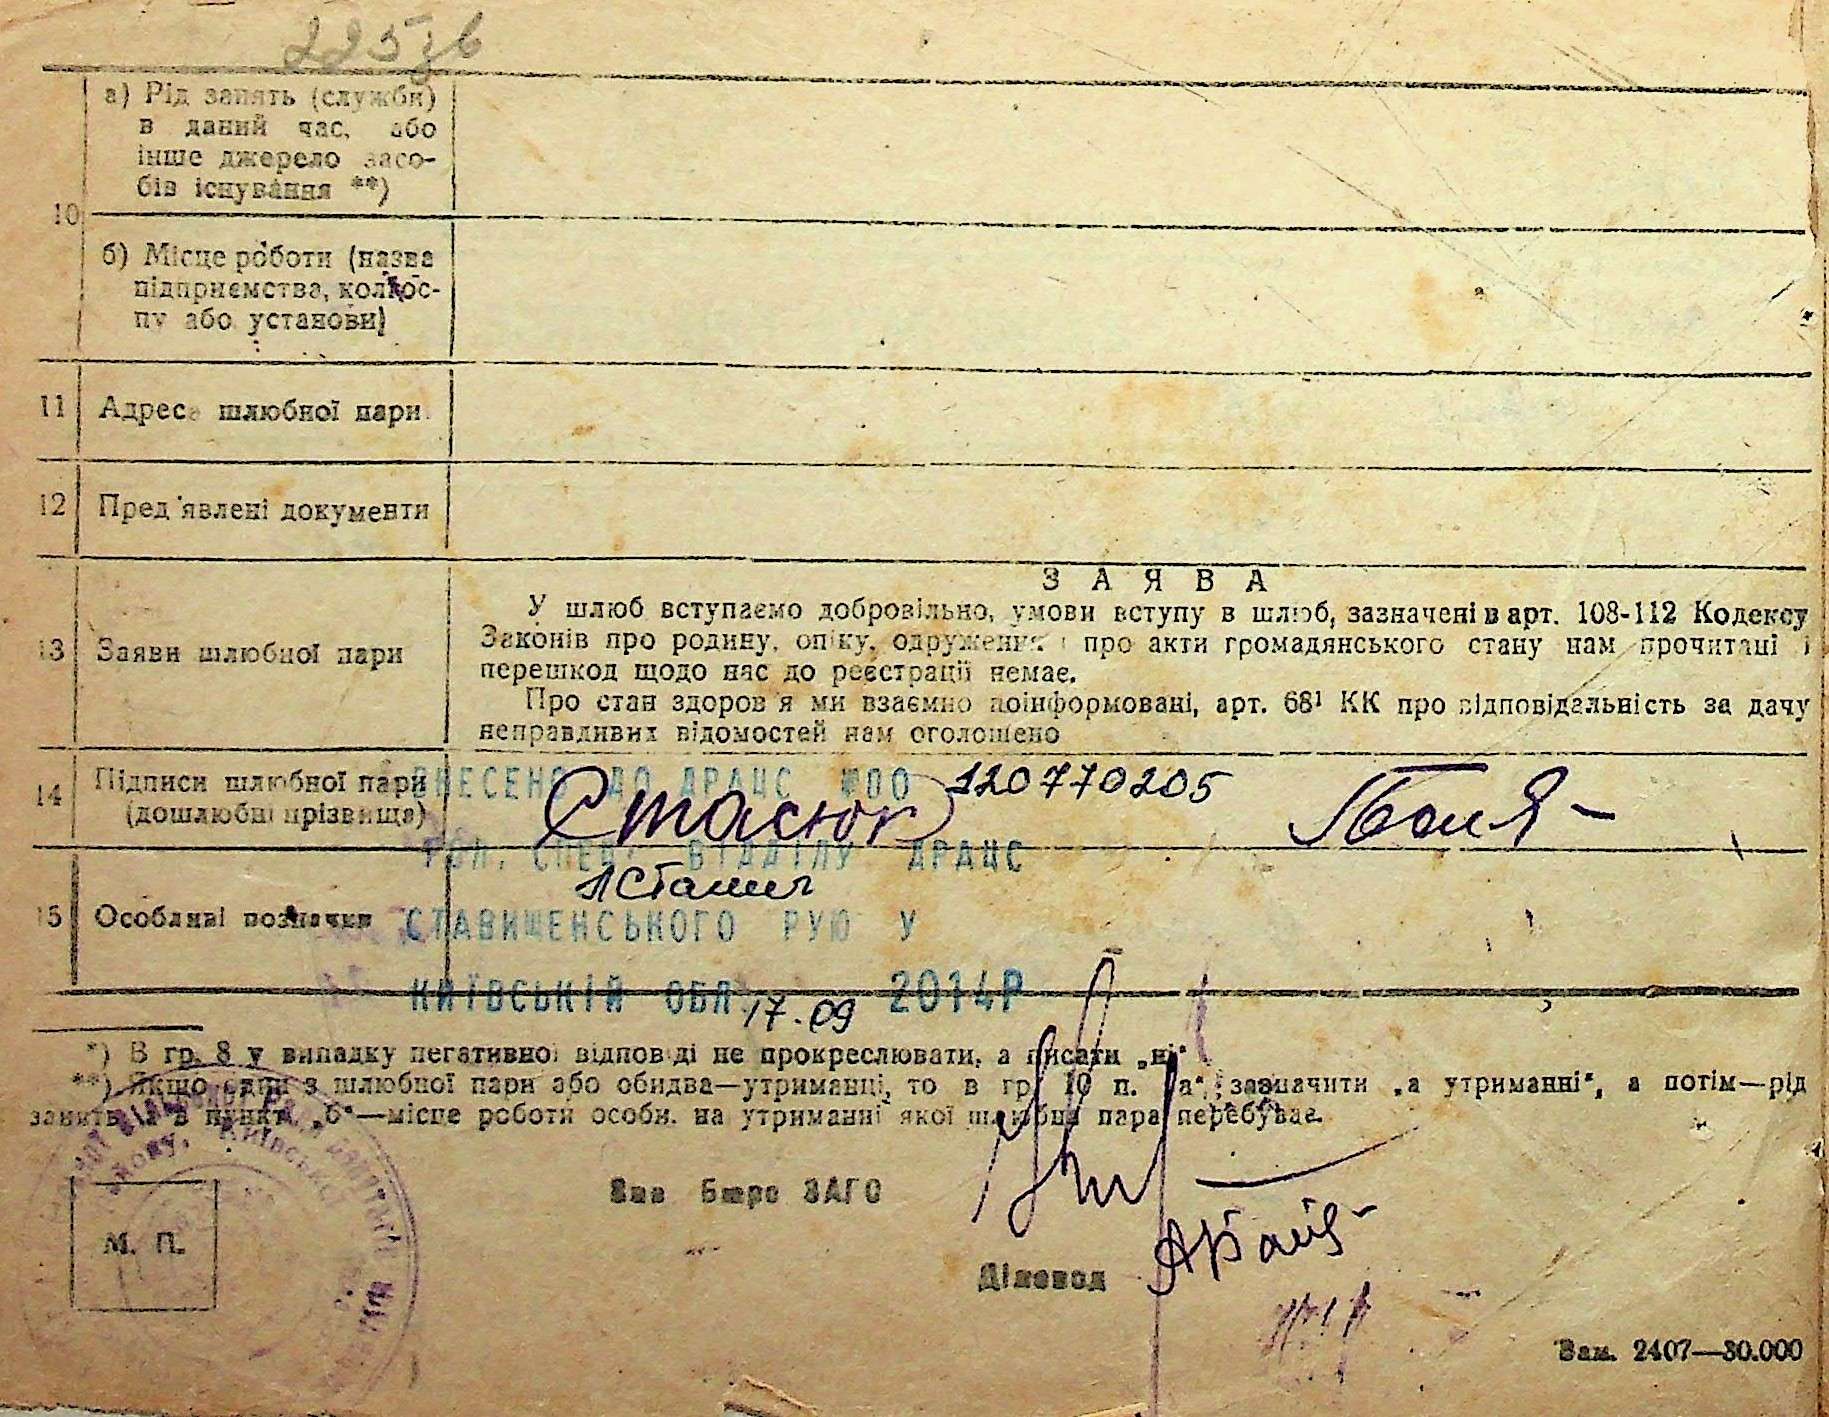 225зв
а) Рід занять (служби)
в даний час, або
інше джерело засо-
бів існування **)
10
б) Місце роботи (назва
підприємства, колгос-
пу або установи)
11 Адреса шлюбної пари
12 Пред'явлені документи
ЗАЯВА
У шлюб вступаємо добровільно, умови вступу в шлюб, зазначені в арт. 108-112 Кодексу
13 Заяви шлюбної пари
Законів про родину, опіку, одруження і про акти громадянського стану нам прочитані і
перешкод щодо нас до реєстрації немає.
Про стан здоров'я ми взаємно поінформовані, арт. 68¹ КК про відповідальність за дачу
неправдивих відомостей нам оголошено
14 Підписи шлюбної пари
(дошлюбні прізвища)
ВНЕСЕНО ДО ДРАЦС №00 120770205
Стасюк
ГОЛ. СПЕЦ. ВІДДІЛУ ДРАЦС
15 Особливі позначки
СТАВИЩЕНСЬКОГО РУЮ У
КИЇВСЬКІЙ ОБЛ. 17.09 2014Р
*) В гр. 8 у випадку негативної відповіді не прокреслювати, а писати „ні“.
**) Якщо один з шлюбної пари або обидва—утриманці, то в гр. 10 п. „а“ зазначити „а утриманні“, а потім—рід
занять, а в пункті „б“—місце роботи особи, на утриманні якої шлюбна пара перебуває.
Зав Бюро ЗАГС
М. П.
Діловод
Зам. 2407—30.000